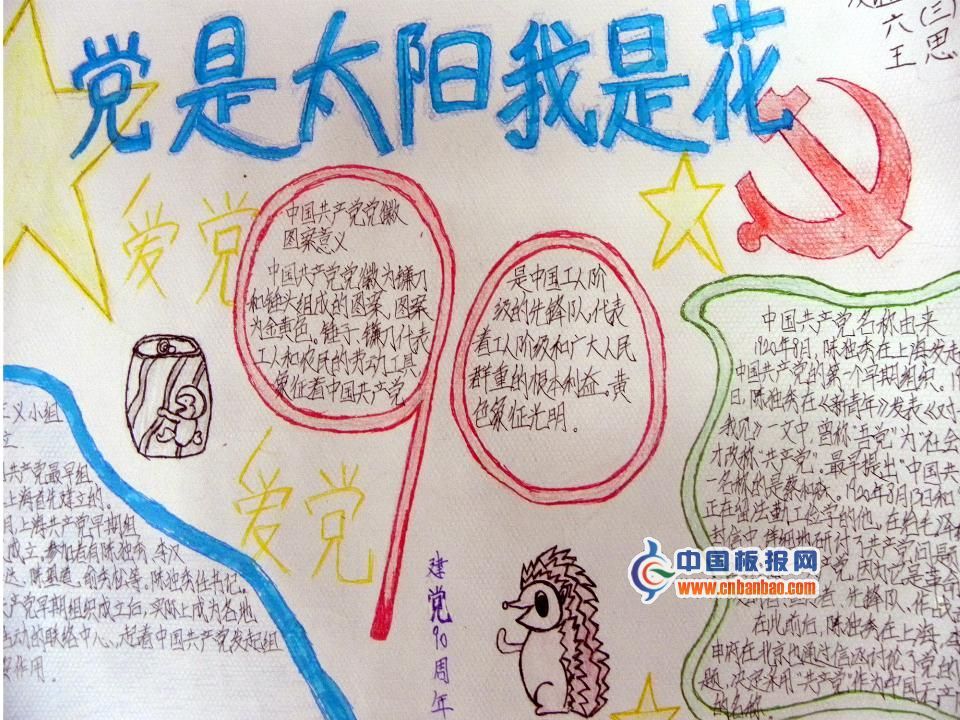 党是太阳我是花
六(三)
王思
爱党
中国共产党党徽
图案意义
中国共产党党徽为镰刀
和锤头组成的图案，图案
为金黄色。锤子、镰刀代表
工人和农民的劳动工具
象征着中国共产党
是中国工人阶
级的先锋队，代表
着工人阶级和广大人民
群重的根本利益。黄
色象征光明。
中国共产党名称由来
1920年8月，陈独秀在上海发起
中国共产党的第一个早期组织。
日，陈独秀在《新青年》发表《对
我见》一文中，曾称“吾党”为“社会
才改称“共产党”。最早提出“中国共
一名称的是蔡和森。1920年8月13日和
正在留法勤工俭学的他，在给毛泽
封信中，详细地研讨了共产党问题
党，因为它是革命
者、先锋队、作战
在此前后，陈独秀在上海、李
申府在北京也通过信函讨论了党的
题，决定采用“共产党”作为中国无产
的名称。
主义小组
立
共产党最早组
上海首先建立的。
月，上海共产党早期组
成立，参加者有陈独秀、李汉
达、陈望道、俞秀松等。陈独秀任书记。
产党早期组织成立后，实际上成为各地
活动的联络中心，起着中国共产党发起组
要作用。
爱党
建党90周年
中国板报网
www.cnbanbao.com